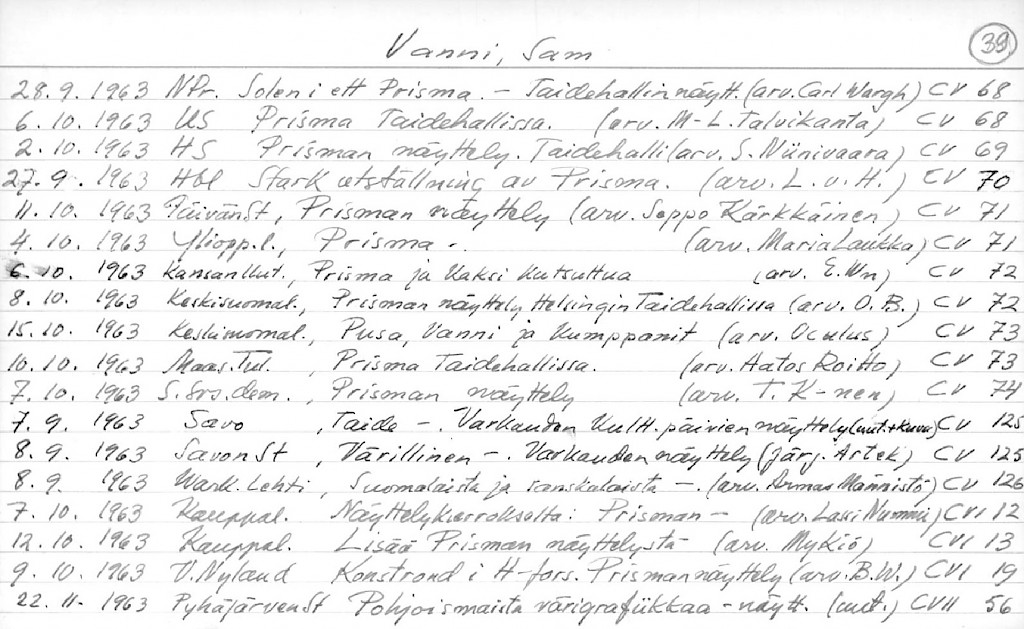 Vanni, Sam 39
28.9. 1963 NPr. Solen i ett Prisma. - Taidehallin näytt. (arv. Carl Wargh) CV 68
6.10. 1963 US Prisma Taidehallissa. (arv. M-L. Talvikanta) CV 68
2.10. 1963 HS Prisman näyttely. Taidehalli (arv. S. Niinivaara) CV 69
27.9. 1963 Hbl Stark utställning av Prisma. (arv. L.v.H.) CV 70
11.10. 1963 PäivänSt, Prisman näyttely (arv. Seppo Kärkkäinen) CV 71
4.10. 1963 Yliopp.l., Prisma -. (arv. Maria Laukka) CV 71
6.10. 1963 KansanUut., Prisma ja kaksi kutsuttua (arv. E. Wn) CV 72
8.10. 1963 Keskisuomal., Prisman näyttely Helsingin Taidehallissa (arv. O.B.) CV 72
15.10. 1963 Keskisuomal., Pusa, Vanni ja kumppanit (arv. Oculus) CV 73
10.10. 1963 Maas.Tul., Prisma Taidehallissa. (arv. Hatos Roitto) CV 73
7.10. 1963 S.Sos.dem., Prisman näyttely (arv. T. K-nen) CV 74
7.9. 1963 Savo, Taide -. Varkauden kultt.päivien näyttely (uut.+kuva) CV 125
8.9. 1963 SavonSt, Värillinen -. Varkauden näyttely (järj. Artek) CV 125
8.9. 1963 Wark.Lehti, Suomalaista ja ranskalaista -. (arv. Armas Männistö) CV 126
7.10. 1963 Kauppal. Näyttelykierrokselta: Prisman - (arv. Lassi Nummi) CVI 12
12.10. 1963 Kauppal. Lisää Prisman näyttelystä (arv. MyKiö) CVI 13
9.10. 1963 V.Nyland Konstrond i H-fors. Prisman näyttely (arv. B.W.) CVI 19
22.11. 1963 PyhäjärvenSt Pohjoismaista värigrafiikkaa -näytt. (uut.) CVII 56